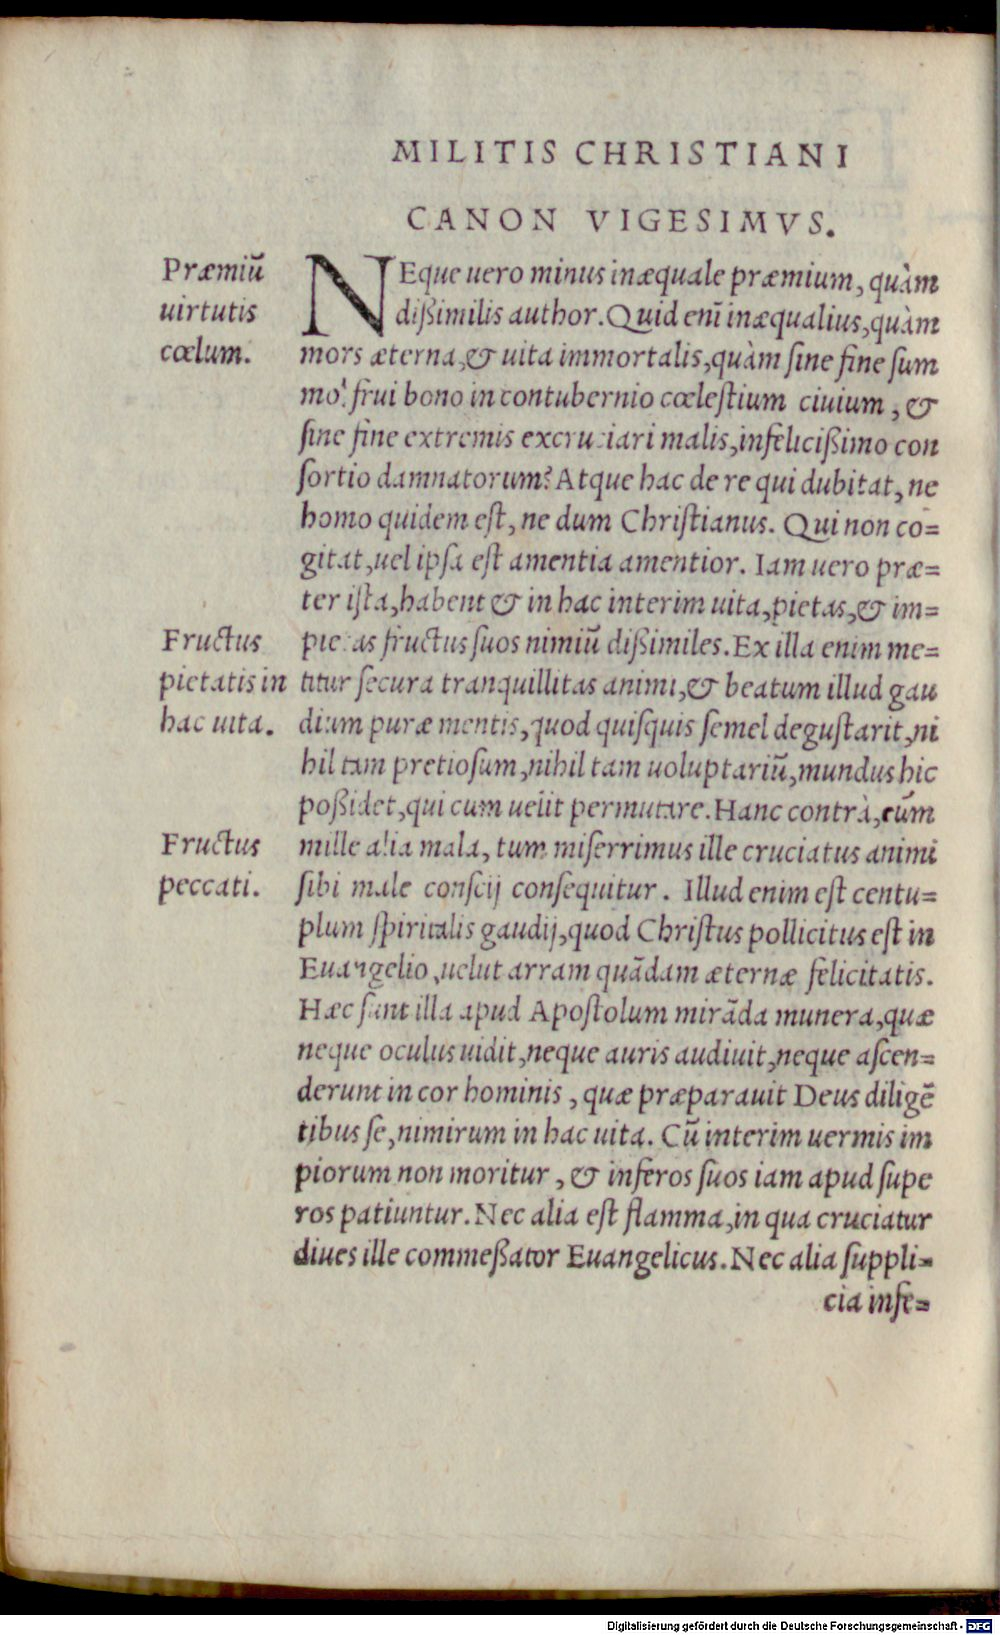 MILITIS CHRISTIANI
CANON VIGESIMVS.
Præmiū
uirtutis
cœlum.
NEque uero minus inæquale præmium, quàm
dißimilis author. Quid enī inæqualius, quàm
mors æterna, & uita immortalis, quàm ſine fine ſum
mo frui bono in contubernio cœleſtium ciuium, &
ſine fine extremis excruciari malis, infelicißimo con
ſortio damnatorum? Atque hac de re qui dubitat, ne
homo quidem eſt, ne dum Chriſtianus. Qui non co=
gitat, uel ipſa eſt amentia amentior. Iam uero præ=
ter iſta, habent & in hac interim uita, pietas, & im=
Fructus
pietatis in
hac uita.
pietas fructus ſuos nimiū dißimiles. Ex illa enim me=
titur ſecura tranquillitas animi, & beatum illud gau
dium puræ mentis, quod quiſquis ſemel deguſtarit, ni
hil tam pretioſum, nihil tam uoluptariū, mundus hic
poßidet, qui cum uelit permutare. Hanc contrà, cūm
Fructus
peccati.
mille alia mala, tum miſerrimus ille cruciatus animi
ſibi male conſcij conſequitur. Illud enim eſt centu=
plum ſpiritalis gaudij, quod Chriſtus pollicitus eſt in
Euangelio, uelut arram quādam æternæ felicitatis.
Hæc ſunt illa apud Apoſtolum mirāda munera, quæ
neque oculus uidit, neque auris audiuit, neque aſcen=
derunt in cor hominis, quæ præparauit Deus diligē
tibus ſe, nimirum in hac uita. Cū interim uermis im
piorum non moritur, & inferos ſuos iam apud ſupe
ros patiuntur. Nec alia eſt flamma, in qua cruciatur
diues ille commeßator Euangelicus. Nec alia ſuppli=
cia infe=
Digitalisierung gefördert durch die Deutsche Forschungsgemeinschaft - DFG